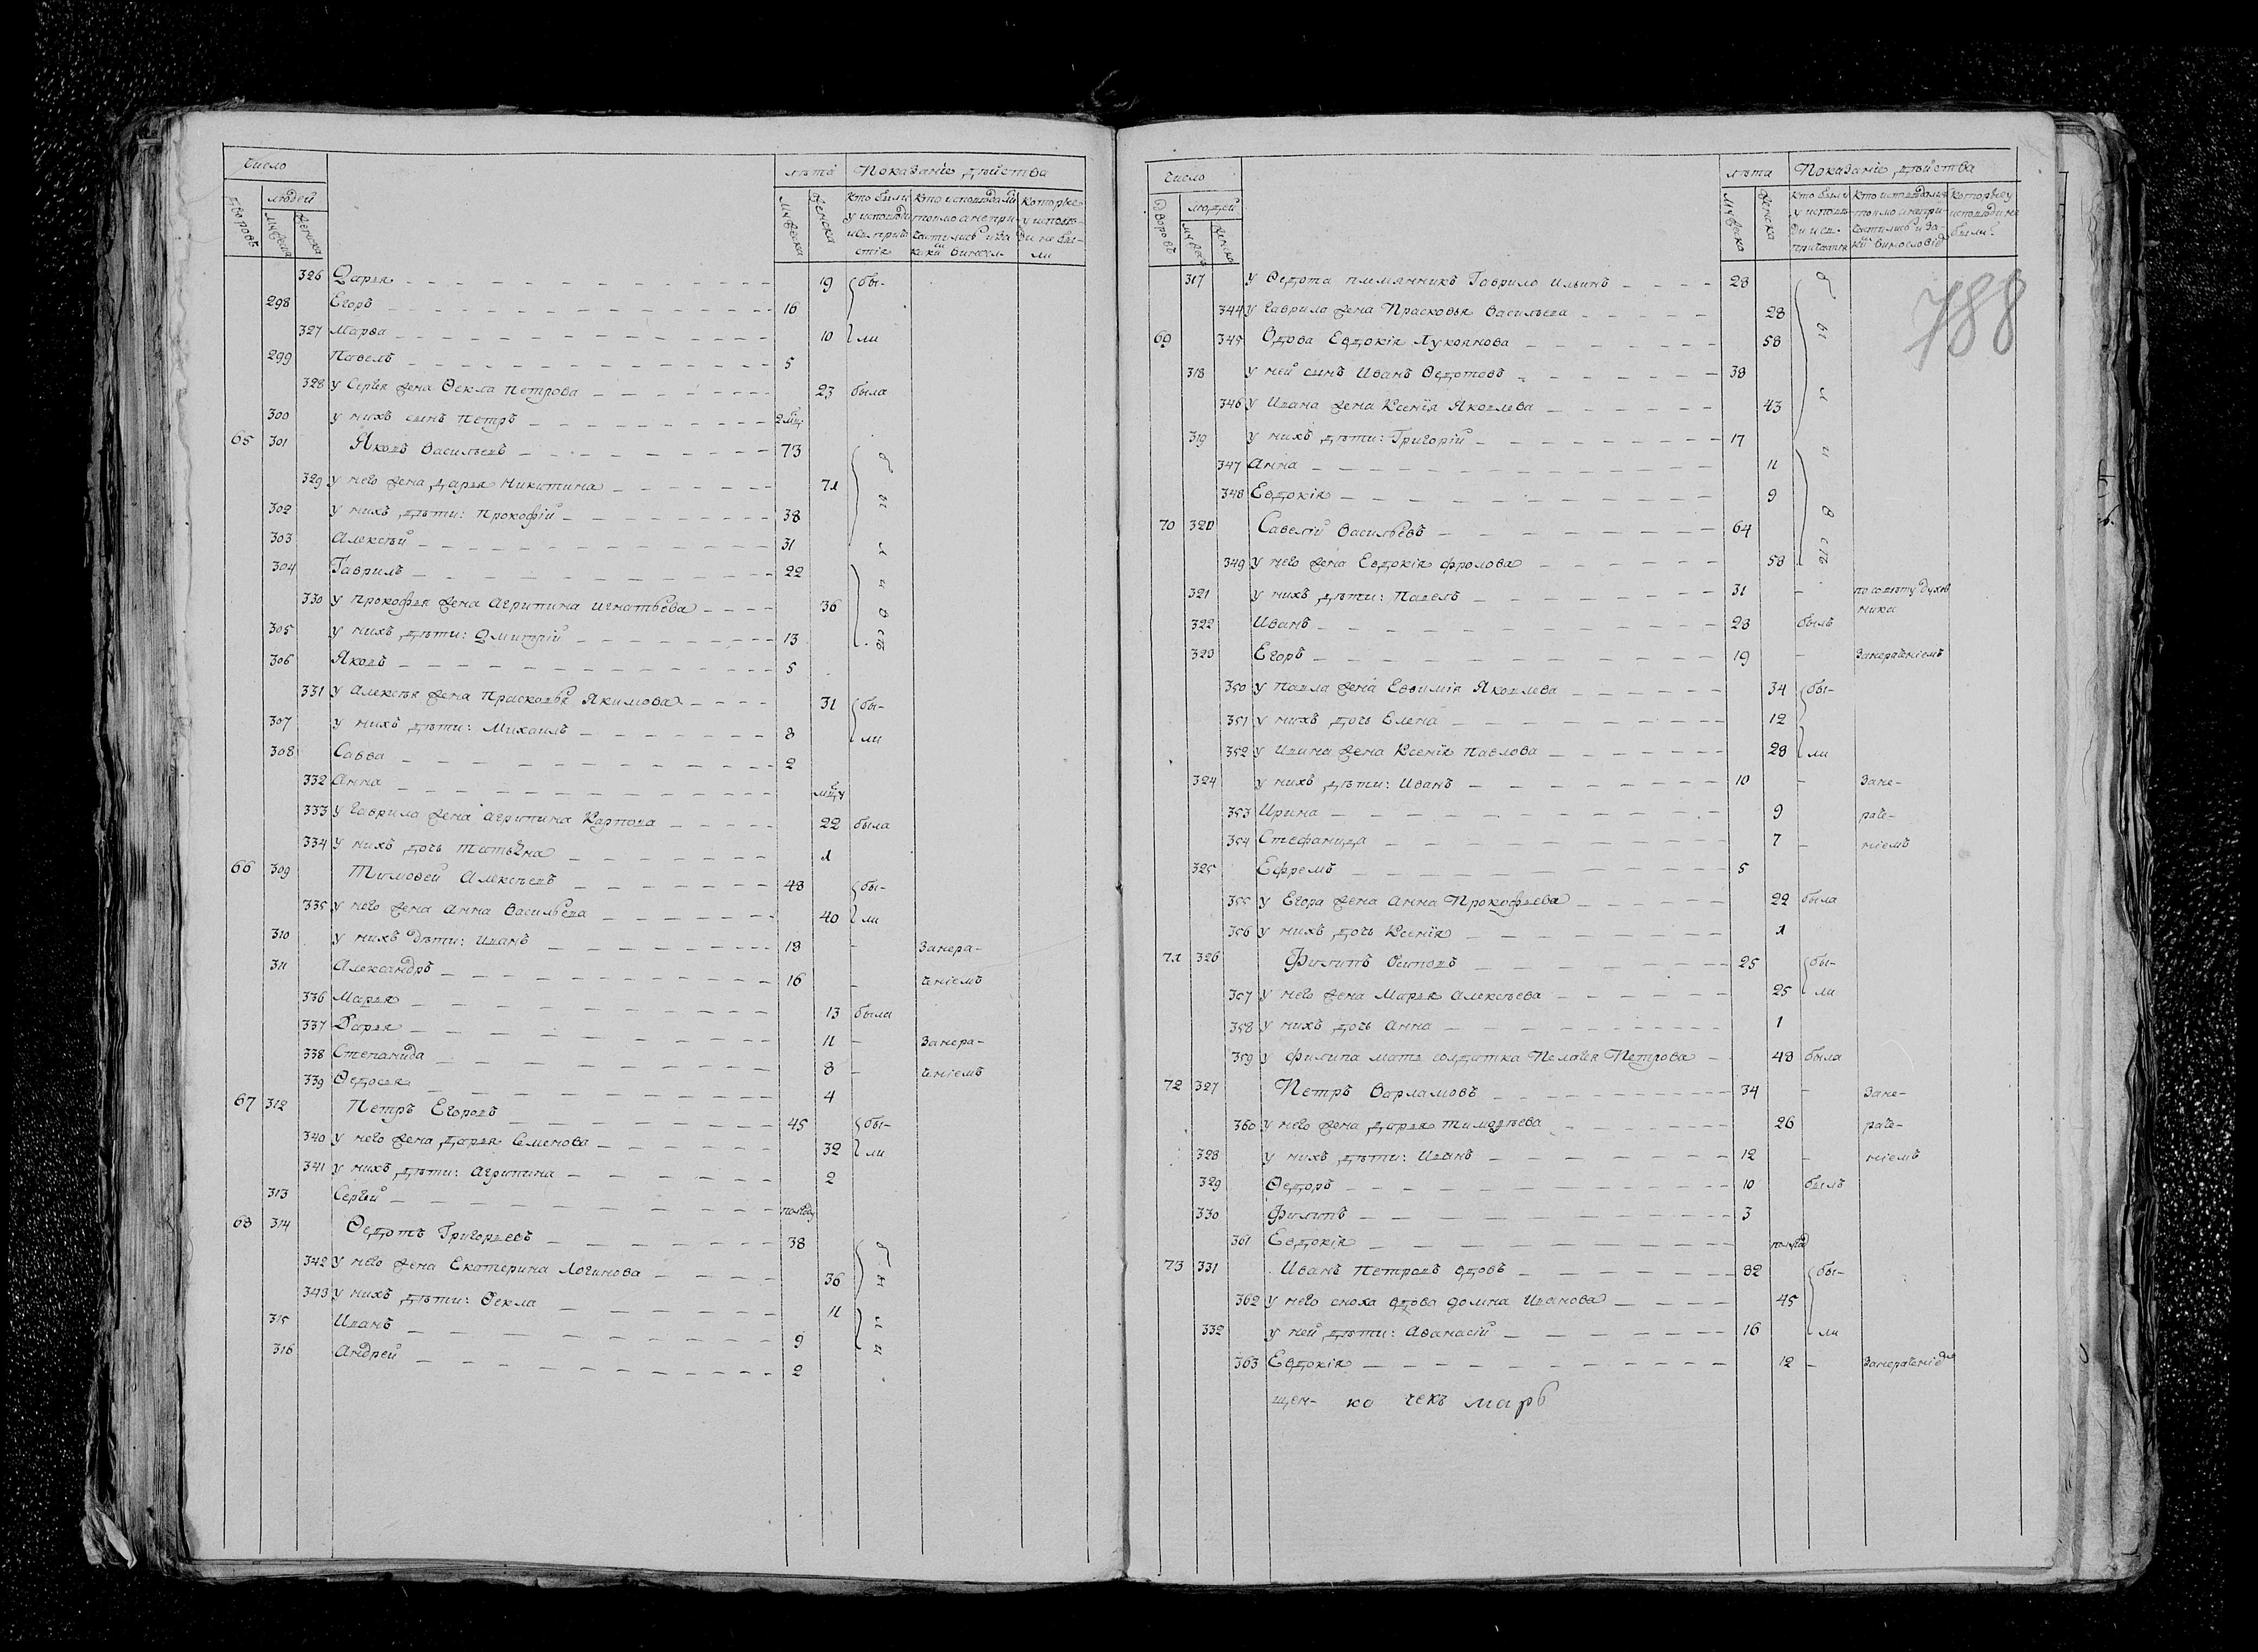 Число
лѣта Показаніе дѣйства
дворовъ людей мужеска женска
мужеска женска
кто были у исповѣди и св. причастія
кто исповѣдались токмо а не причастились и за каки винсл.
которые у исповѣди не были
326 Дарья 19 бы-
298 Егоръ 16
327 Марѳа 10 ли
299 Павелъ 5
328 у Сергея жена Ѳекла Петрова 23 была
300 у нихъ сынъ Петръ 2 мцы
65 301 Яковъ Васильевъ 73
329 у него жена Дарья Никитина 71
302 у нихъ дѣти: Прокофій 38
303 Алексѣй 31
304 Гаврилъ 22
330 у Прокофья жена Агрипина Игнатьева 36
305 у нихъ дѣти: Дмитрій 13
306 Яковъ 5
331 у Алексѣя жена Прасковья Якимова 31 бы-
307 у нихъ дѣти: Михаилъ 8 ли
308 Савва 2
332 Анна мцу
333 у Гаврила жена Агрипина Карпова 22 была
334 у нихъ дочь Татьяна 1
66 309 Тимоѳей Алексѣевъ 48 бы-
335 у него жена Анна Васильева 40 ли
310 у нихъ дѣти: Иванъ 18 – Занера-
311 Александръ 16 – ченіемъ
336 Марья 13 была
337 Дарья 11 – Занера-
338 Степанида 8 – ченіемъ
339 Ѳедосья 4
67 312 Петръ Егоровъ 45 бы-
340 у него жена Дарья Семенова 32 ли
341 у нихъ дѣти: Агрипина 2
313 Сергѣй полгоду
68 314 Ѳедотъ Григорьевъ 38
342 у него жена Екатерина Логинова 36
343 у нихъ дѣти: Ѳекла 11
315 Иванъ 9
316 Андрей 2
788
Число
лѣта Показаніе дѣйства
дворовъ людей мужеска женска
мужеска женска
кто были у исповѣди и св. причастія
кто исповѣдались токмо а не причастились и за каки винословія
которые у исповѣди не были
317 у Ѳедота племянникъ Гаврило Ильинъ 28
344 у Гаврила жена Прасковья Васильева 28
69 345 Вдова Евдокія Лукоянова 58
318 у ней сынъ Иванъ Ѳедотовъ 38
346 у Ивана жена Ксенія Яковлева 43
319 у нихъ дѣти: Григорій 17
347 Анна 11
348 Евдокія 9
70 320 Савелій Васильевъ 64
349 у него жена Евдокія Фролова 58
321 у нихъ дѣти: Павелъ 31 – по совѣту духов
ника
322 Иванъ 28 былъ
323 Егоръ 19 – Занераченіемъ
350 у Павла жена Евѳимія Яковлева 34 бы-
351 у нихъ дочь Елена 12
352 у Ивана жена Ксенія Павлова 28 ли
324 у нихъ дѣти: Иванъ 10 – Зане-
353 Ирина 9 раче-
354 Стефанида 7 – ніемъ
325 Ефремъ 5
355 у Егора жена Анна Прокофьева 22 была
356 у нихъ дочь Ксенія 1
71 326 Филипъ Осиповъ 25 бы-
357 у него жена Марья Алексѣева 25 ли
358 у нихъ дочь Анна 1
359 у Филипа мать солдатка Пелагея Петрова 48 была
72 327 Петръ Варламовъ 34 – Зане-
360 у него жена Дарья Тимоѳѣева 26 раче-
328 у нихъ дѣти: Иванъ 12 – ніемъ
329 Ѳедоръ 10 былъ
330 Филипъ 3
361 Евдокія полгод
73 331 Иванъ Петровъ вдовъ 82 бы-
362 у него сноха вдова Домна Иванова 45
332 у ней дѣти: Аѳанасій 16 ли
363 Евдокія 12 – Занераченіем
щен- ко чекъ